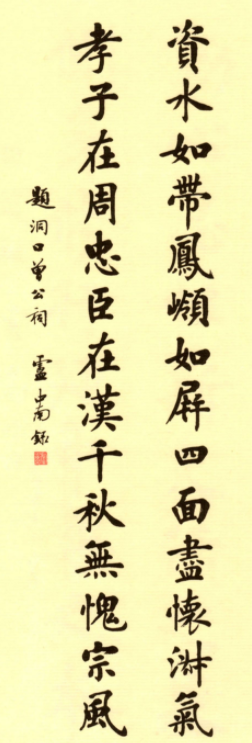 資水如帶鳳嶺如屏四面盡懷淋氣
孝子在周忠臣在漢千秋無愧宗風
題洞口曾公祠 盧中南錄